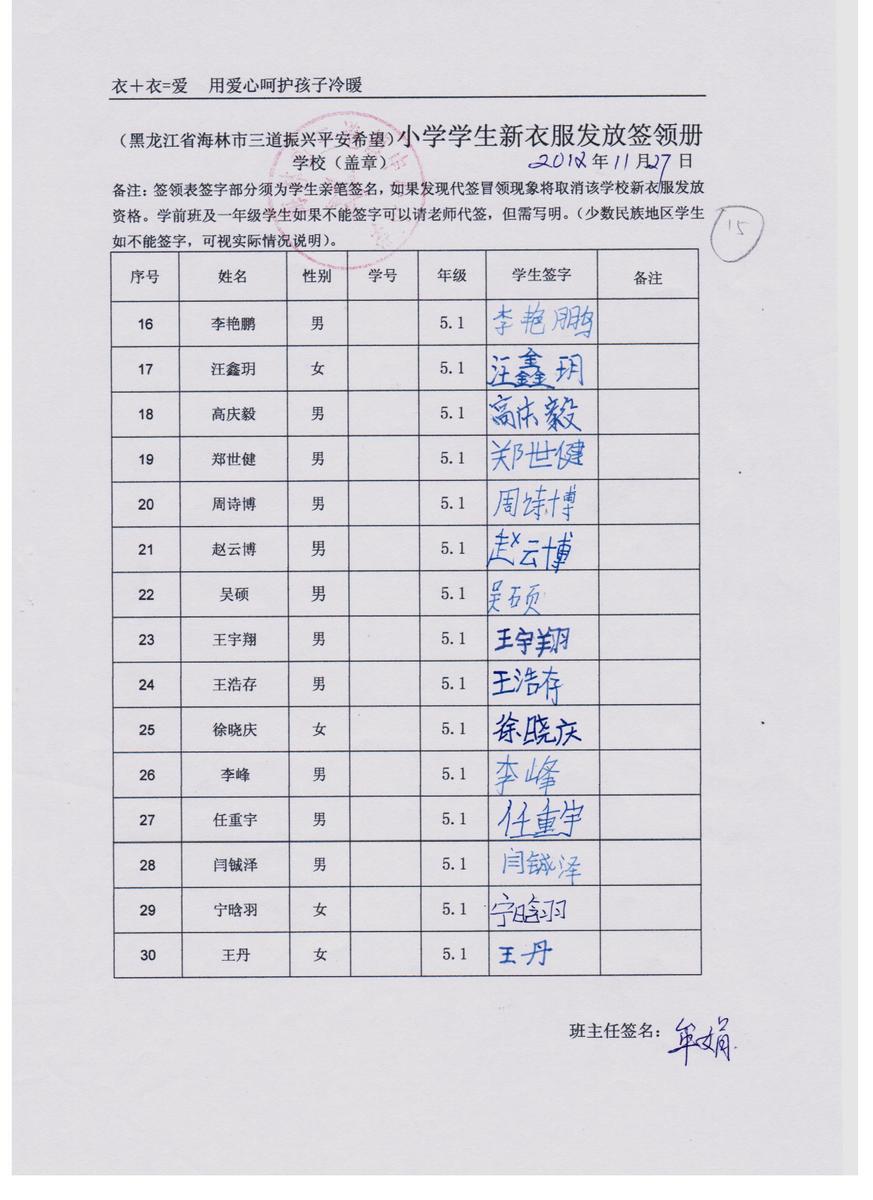 衣+衣=爱 用爱心呵护孩子冷暖
(黑龙江省海林市三道振兴平安希望)小学学生新衣服发放签领册
学校(盖章) 2012年11月27日
备注:签领表签字部分须为学生亲笔签名,如果发现代签冒领现象将取消该学校新衣服发放
资格。学前班及一年级学生如果不能签字可以请老师代签,但需写明。(少数民族地区学生
如不能签字,可视实际情况说明)。
15
序号 姓名 性别 学号 年级 学生签字 备注
16 李艳鹏 男 5.1 李艳鹏
17 汪鑫玥 女 5.1 汪鑫玥
18 高庆毅 男 5.1 高庆毅
19 郑世健 男 5.1 郑世健
20 周诗博 男 5.1 周诗博
21 赵云博 男 5.1 赵云博
22 吴硕 男 5.1 吴硕
23 王宇翔 男 5.1 王宇翔
24 王浩存 男 5.1 王浩存
25 徐晓庆 女 5.1 徐晓庆
26 李峰 男 5.1 李峰
27 任重宇 男 5.1 任重宇
28 闫铖泽 男 5.1 闫铖泽
29 宁晗羽 女 5.1 宁晗羽
30 王丹 女 5.1 王丹
班主任签名:牟娟